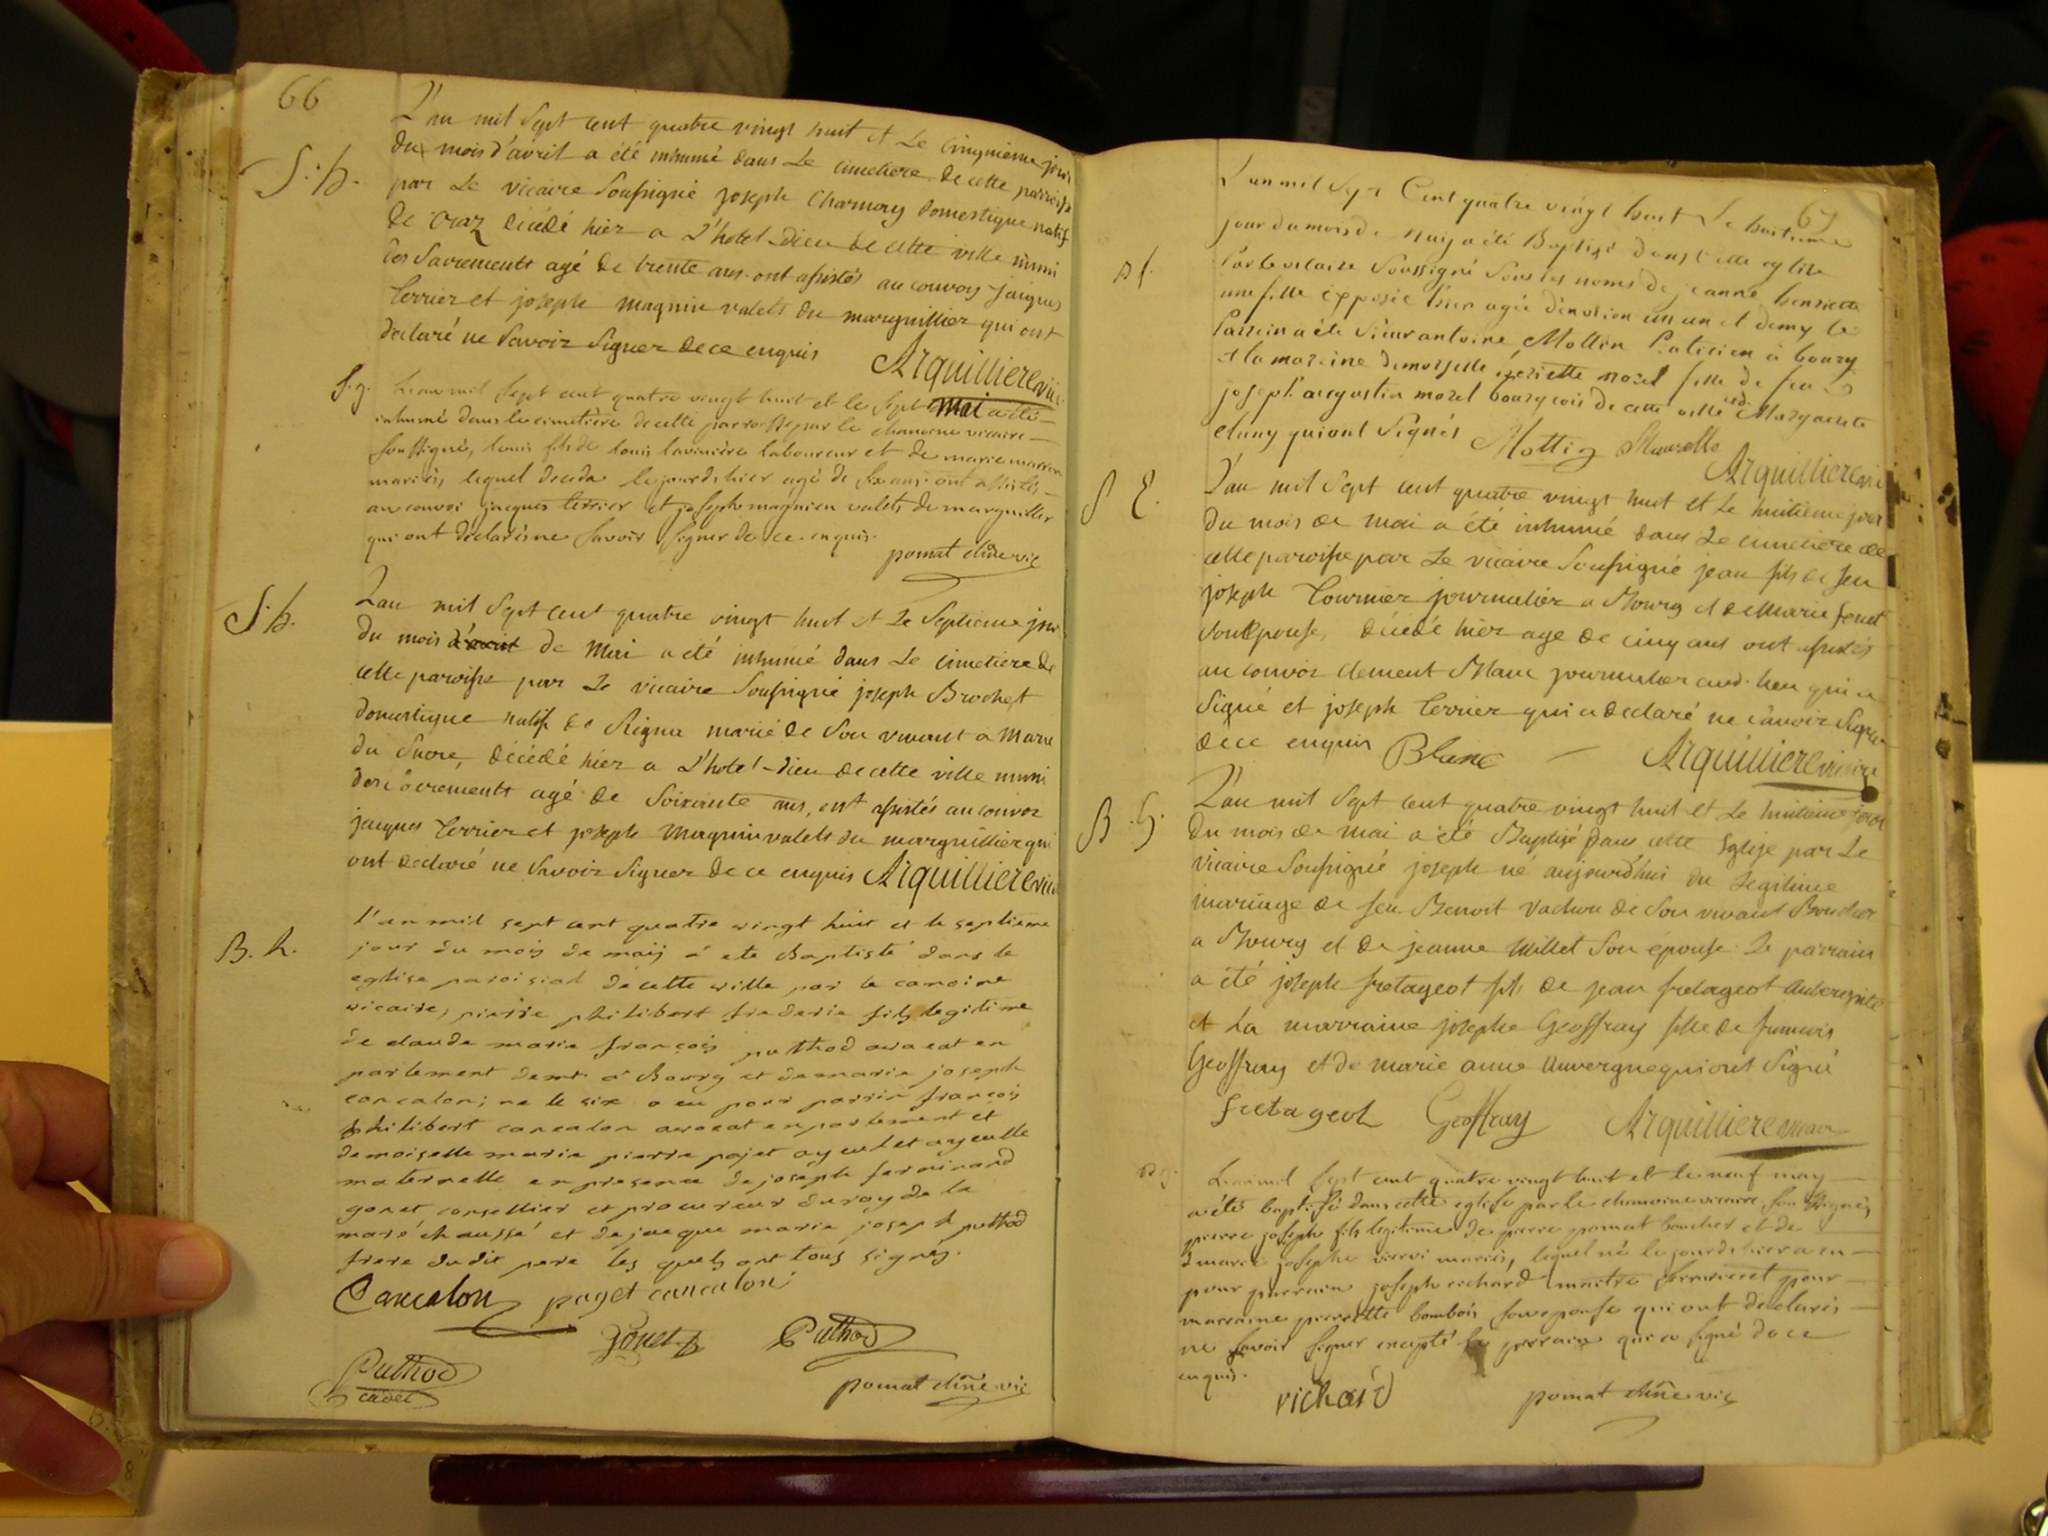 66
S. h.
L'an mil Sept cent quatre vingt huit et Le Cinquieme jour
du mois d'avril a été inhumé dans Le Cimetiere de cette parroisse
par Le vicaire Soussigné joseph Charnay domestique natif
de Craz décédé hier a L'hotel-dieu de cette ville muni
des Sacrements agé de trente ans. ont assistés au convoy jacques
terrier et joseph magnin valets du marguillier qui ont
declaré ne Savoir Signer de ce enquis Arquilliere vic.
S. g.
L'an mil Sept cent quatre vingt huit et le Sept mai a été
inhumé dans le cimetière de cette parroisse par le chanoine vicaire
soussigné, Louis fils de louis lavinière laboureur et de marie
mariés, lequel deceda le jourd'hier agé de six ans. ont assistés
au convoi jacques terrier et joseph magnien valets de marguiller
qui ont déclarés ne savoir signer de ce enquis.
pomat chne vic
S. h.
L'an mil Sept cent quatre vingt huit et Le Septieme jour
du mois d'avril de Mai a été inhumé dans Le Cimetiere de
cette paroisse par Le vicaire Soussigné joseph Brochet
domestique natif de Signa marié de Son vivant a Marie
du Sucre, décédé hier a L'hotel-dieu de cette ville muni
des Sacrements agé de Soixante ans, ont assistés au convoi
jacques terrier et joseph magnin valets du marguillier qui
ont declaré ne Savoir Signer de ce enquis Arquilliere vic
B. h.
l'an mil sept cent quatre vingt huit et le septieme
jour du mois de maij a ete Baptisté dans la
eglise paroisial de cette ville par le canoine
vicaire, pierre philibert frederic fils legitime
de claude marie françois puthod avocat en
parlement demt. a Bourg et de marie joseph
cancalon; ne le six a eu pour parrin françois
philibert cancalon avocat en parlement et
demoiselle marie pierre pajet ayeul et ayeulle
maternelle en presence de joseph ferdinand
gonet consellier et procureur du roy de la
maréchaussé et de jacque marie joseph puthod
frere dudit pere les quels ont tous signés.
Cancalon paget cancalon
gonet Puthod
Puthod
cadet
pomat chne vic
67
L'an mil Sept Cent quatre vingt huit Le huitieme
jour du mois de maij a été Baptisé dans cette eglise
Par le vicaire Soussigné Sous les noms de jeanne henriette
une fille exposée hier agée d'environ un an et demy le
Parrin a été Sieur antoine Mottin Praticien à bourg
et la marraine demoiselle henriette morel fille de feu
joseph augustin morel bourgeois de cette ville et de Marguerite
cluny qui ont Signés Mottin Arquilliere vic
S E.
L'an mil Sept cent quatre vingt huit et Le huitieme jour
du mois de mai a été inhumé dans Le cimetiere de
cette paroisse par Le vicaire Soussigné jean fils de feu
joseph tournier journalier a Bourg et de Marie fenet
Son Epouse, décédé hier age de cinq ans ont assistés
au convoi clement Blanc journalier aud. lieu qui a
Signé et joseph terrier qui a declaré ne savoir Signer
de ce enquis Blanc Arquilliere vicaire
B. G.
L'an mil Sept cent quatre vingt huit et Le huitieme jour
du mois de mai a été Baptisé dans cette Eglise par Le
vicaire Soussigné joseph né aujourd'hui du Legitime
mariage de feu Benoit vachon de Son vivant Boucher
a Bourg et de jeanne Millet Son épouse. Le parrain
a été joseph fretageot fils de jean fretageot aubergiste
et La marraine josephe Geoffray fille de francois
Geoffray et de marie anne auvergne qui ont Signé
fretageot Geoffray Arquilliere vicaire
L'an mil Sept cent quatre vingt huit et le neuf may
a été baptisé dans cette eglise par le chanoine vicaire soussigné,
pierre joseph fils legitime de pierre pomat boucher et de
marie josephe mariés, lequel né le jourd'hier a eu
pour parrain joseph richard maitre et pour
marraine pierrette bombois son epouse qui ont declarés
ne savoir signer excepté le parrain qui a signé de ce
enquis.
richard pomat chne vic